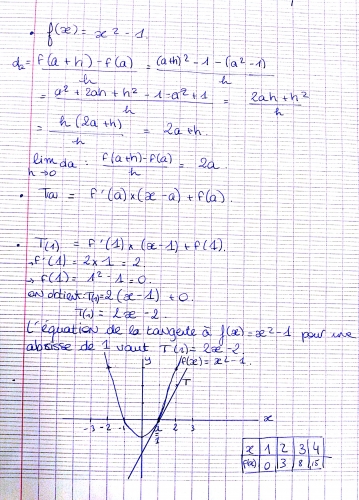 f(x) = x² - 1.
da = f(a+h) - f(a) / h = (a+h)² - 1 - (a² - 1) / h
= a² + 2ah + h² - 1 - a² + 1 / h = 2ah + h² / h
= h(2a+h) / h = 2a + h.
lim da : f(a+h) - f(a) / h = 2a.
h→0
T(a) = f'(a) × (x - a) + f(a).
T(1) = f'(1) × (x - 1) + f(1).
→ f'(1) = 2 × 1 = 2.
→ f(1) = 1² - 1 = 0.
on obtient T(1) = 2(x - 1) + 0.
T(1) = 2x - 2.
L'équation de la tangente à f(x) = x² - 1 pour une
abscisse de 1 vaut T(1) = 2x - 2.
y f(x) = x² - 1.
T
-3 -2 -1 1 2 3 x
x 1 2 3 4
f(x) 0 3 8 15